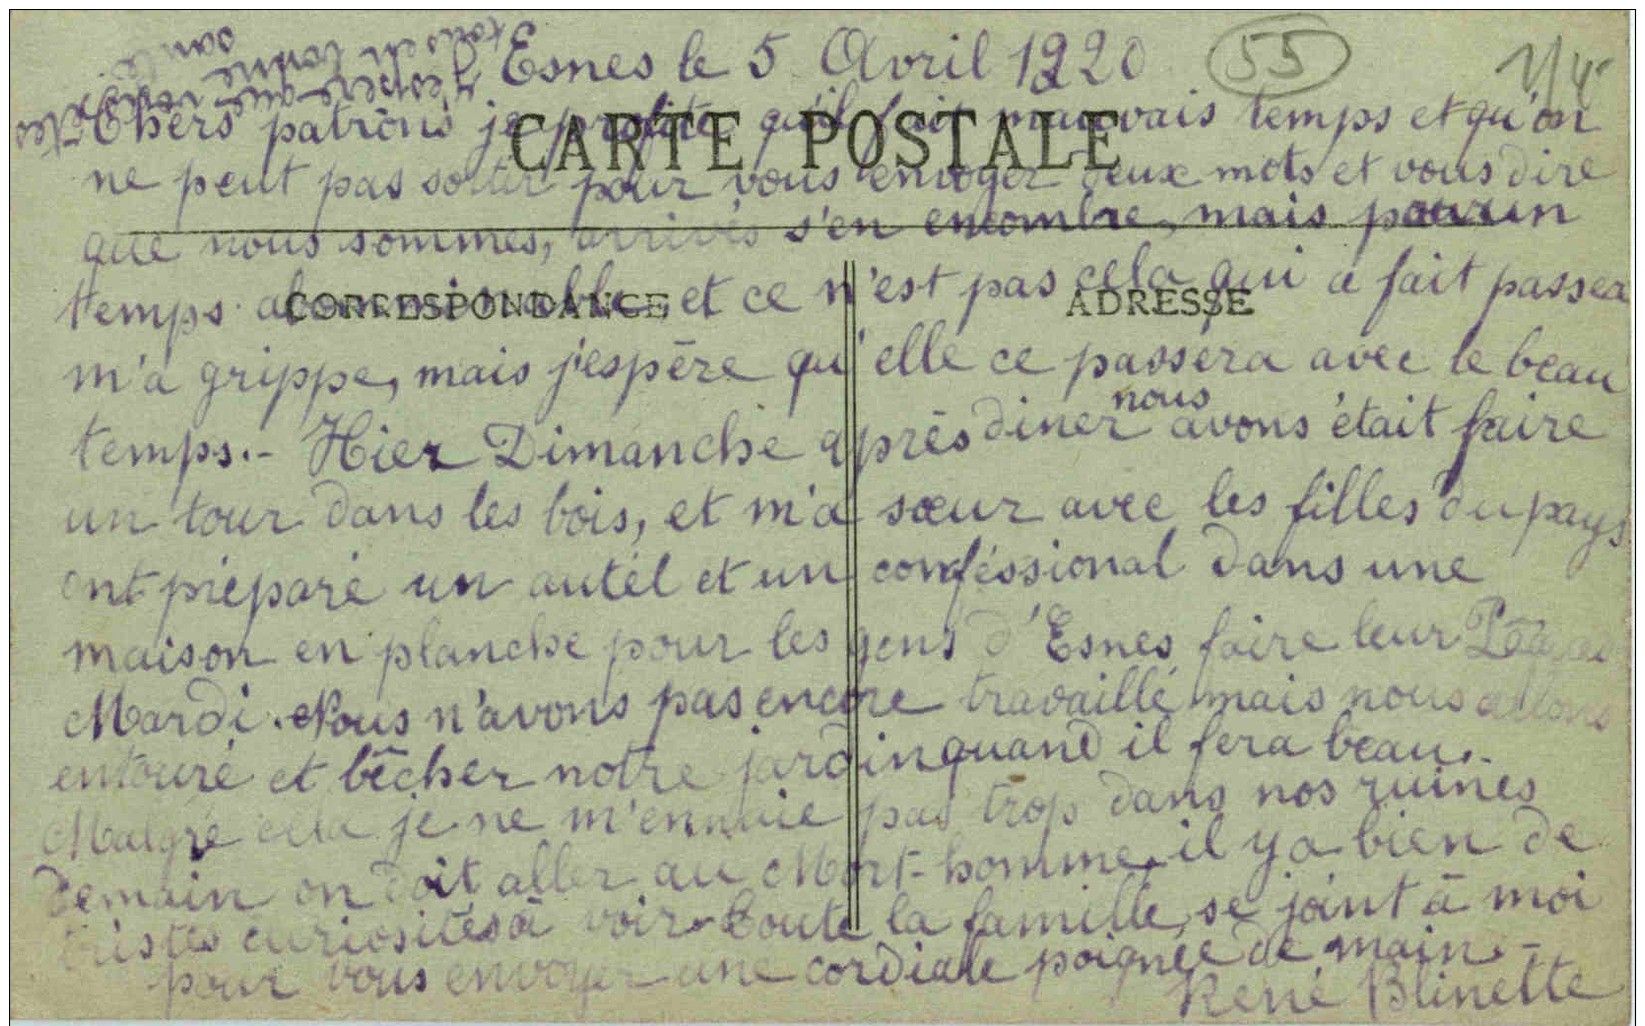 Esnes le 5 Avril 1920
55
1/4
CARTE POSTALE
CORRESPONDANCE
ADRESSE
Chers patrons je profite qu'il fait mauvais temps et qu'on
ne peut pas sortir pour vous envoyer deux mots et vous dire
que nous sommes, arrivés s'en encombre, mais par un
temps abominable, et ce n'est pas cela qui a fait passer
m'a grippe, mais j'espère qu'elle ce passéra avec le beau
temps.- Hier Dimanche après diner nous avons était faire
un tour dans les bois, et m'a sœur avec les filles du pays
ont préparé un autél et un conféssional dans une
maison en planche pour les gens d'Esnes faire leur Pâques
Mardi. Nous n'avons pas encore travaillé mais nous allons
entouré et bêcher notre jardin quand il fera beau.
Malgré cela je ne m'ennuie pas trop dans nos ruines
demain on doit aller au Mort-homme, il y a bien de
tristes curiosités à voir. Toute la famille, se joint à moi
pour vous envoyer une cordiale poignée de main.-
René Blinette
J'espère que vous êtes
tous en bonne
santé